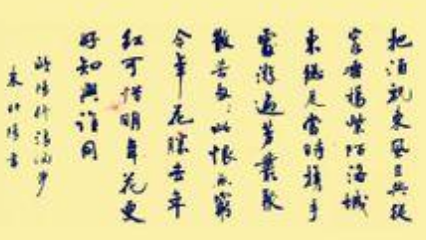 把酒祝東風且共從
容垂楊紫陌洛城
東總是當時攜手
處游遍芳叢聚
散苦匆々此恨無窮
今年花勝去年
紅可惜明年花更
好知與誰同
歐陽修浪淘沙
書